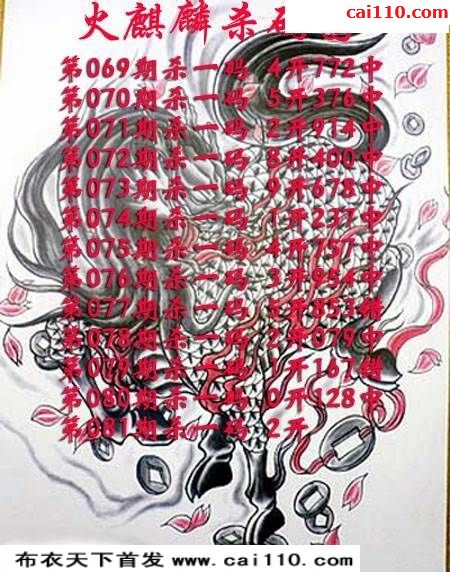 cai110.com
火麒麟杀码
第069期杀一码 4开772中
第070期杀一码 5开376中
第071期杀一码 2开914中
第072期杀一码 8开400中
第073期杀一码 9开678中
第074期杀一码 1开237中
第075期杀一码 4开757中
第076期杀一码 3开954中
第077期杀一码 5开853错
第078期杀一码 2开079中
第079期杀一码 1开167错
第080期杀一码 0开128中
第081期杀一码 2开
布衣天下首发 www.cai110.com